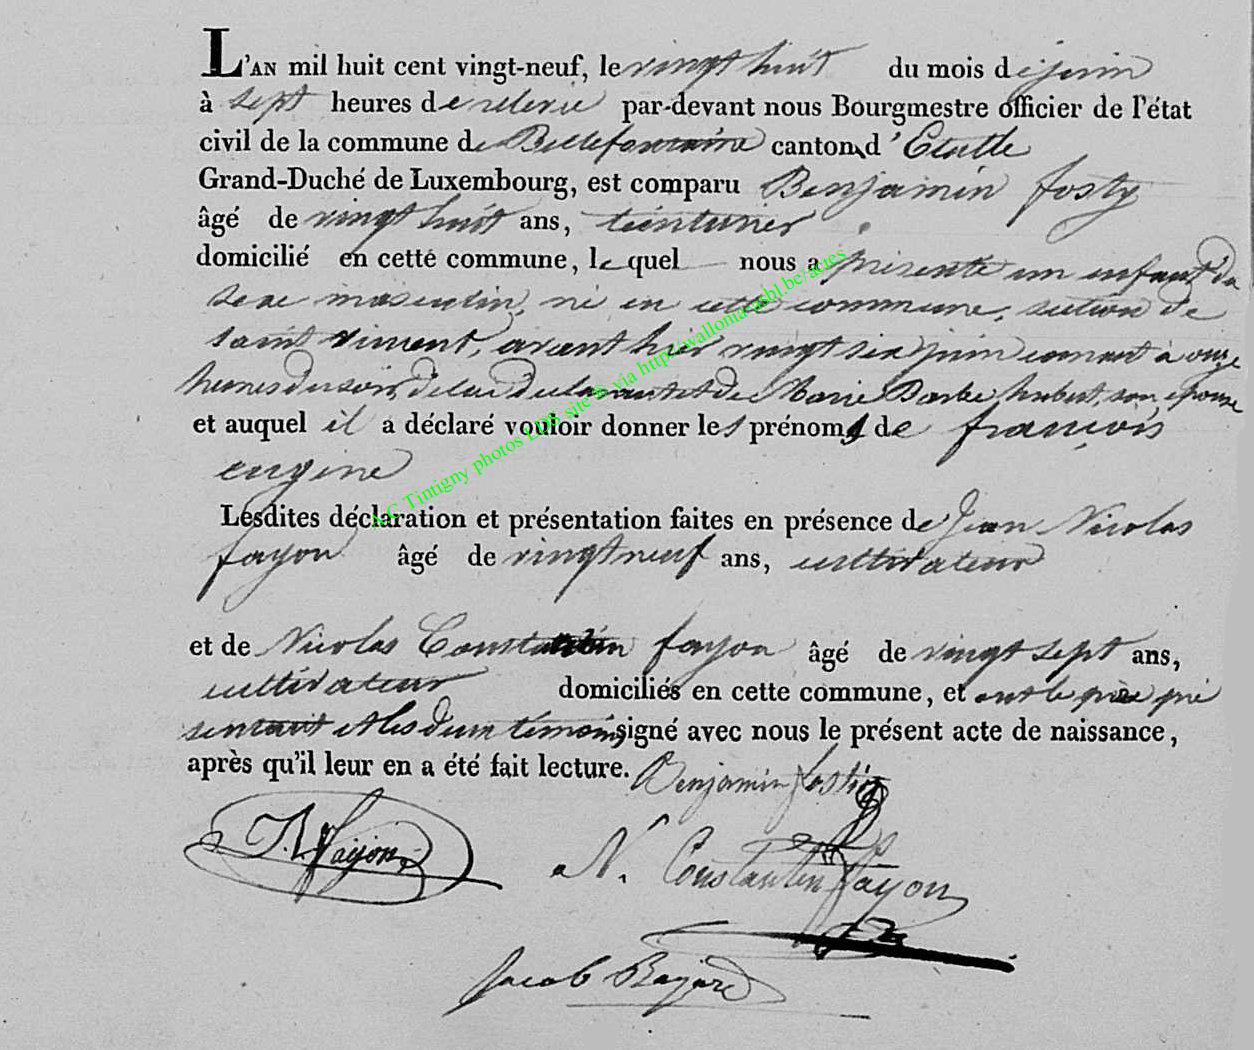 L'AN mil huit cent vingt-neuf, le vingt huit du mois de juin
à sept heures de relevée par-devant nous Bourgmestre officier de l'état
civil de la commune de Bellefontaine canton d'Etalle
Grand-Duché de Luxembourg, est comparu Benjamin fosty
âgé de vingt huit ans, teinturier
domicilié en cette commune, lequel nous a présenté un enfant du
sexe masculin, né en cette commune, section de
saint vincent, avant hier vingt six juin courant à onze
heures du soir, de lui déclarant et de Marie Barbe hubert, son épouse
et auquel il a déclaré vouloir donner les prénoms de françois
eugène
Lesdites déclaration et présentation faites en présence de Jean Nicolas
fayon âgé de vingt neuf ans, cultivateur
et de Nicolas Constantin fayon âgé de vingt sept ans,
cultivateur domiciliés en cette commune, et ont le père pré
sentant et les deux témoins signé avec nous le présent acte de naissance,
après qu'il leur en a été fait lecture. Benjamin
fayon
N. Constantin fayon
Jacob Bayard
A.C Tintigny photos LDS site via http://wallonia-asbl.be/actes